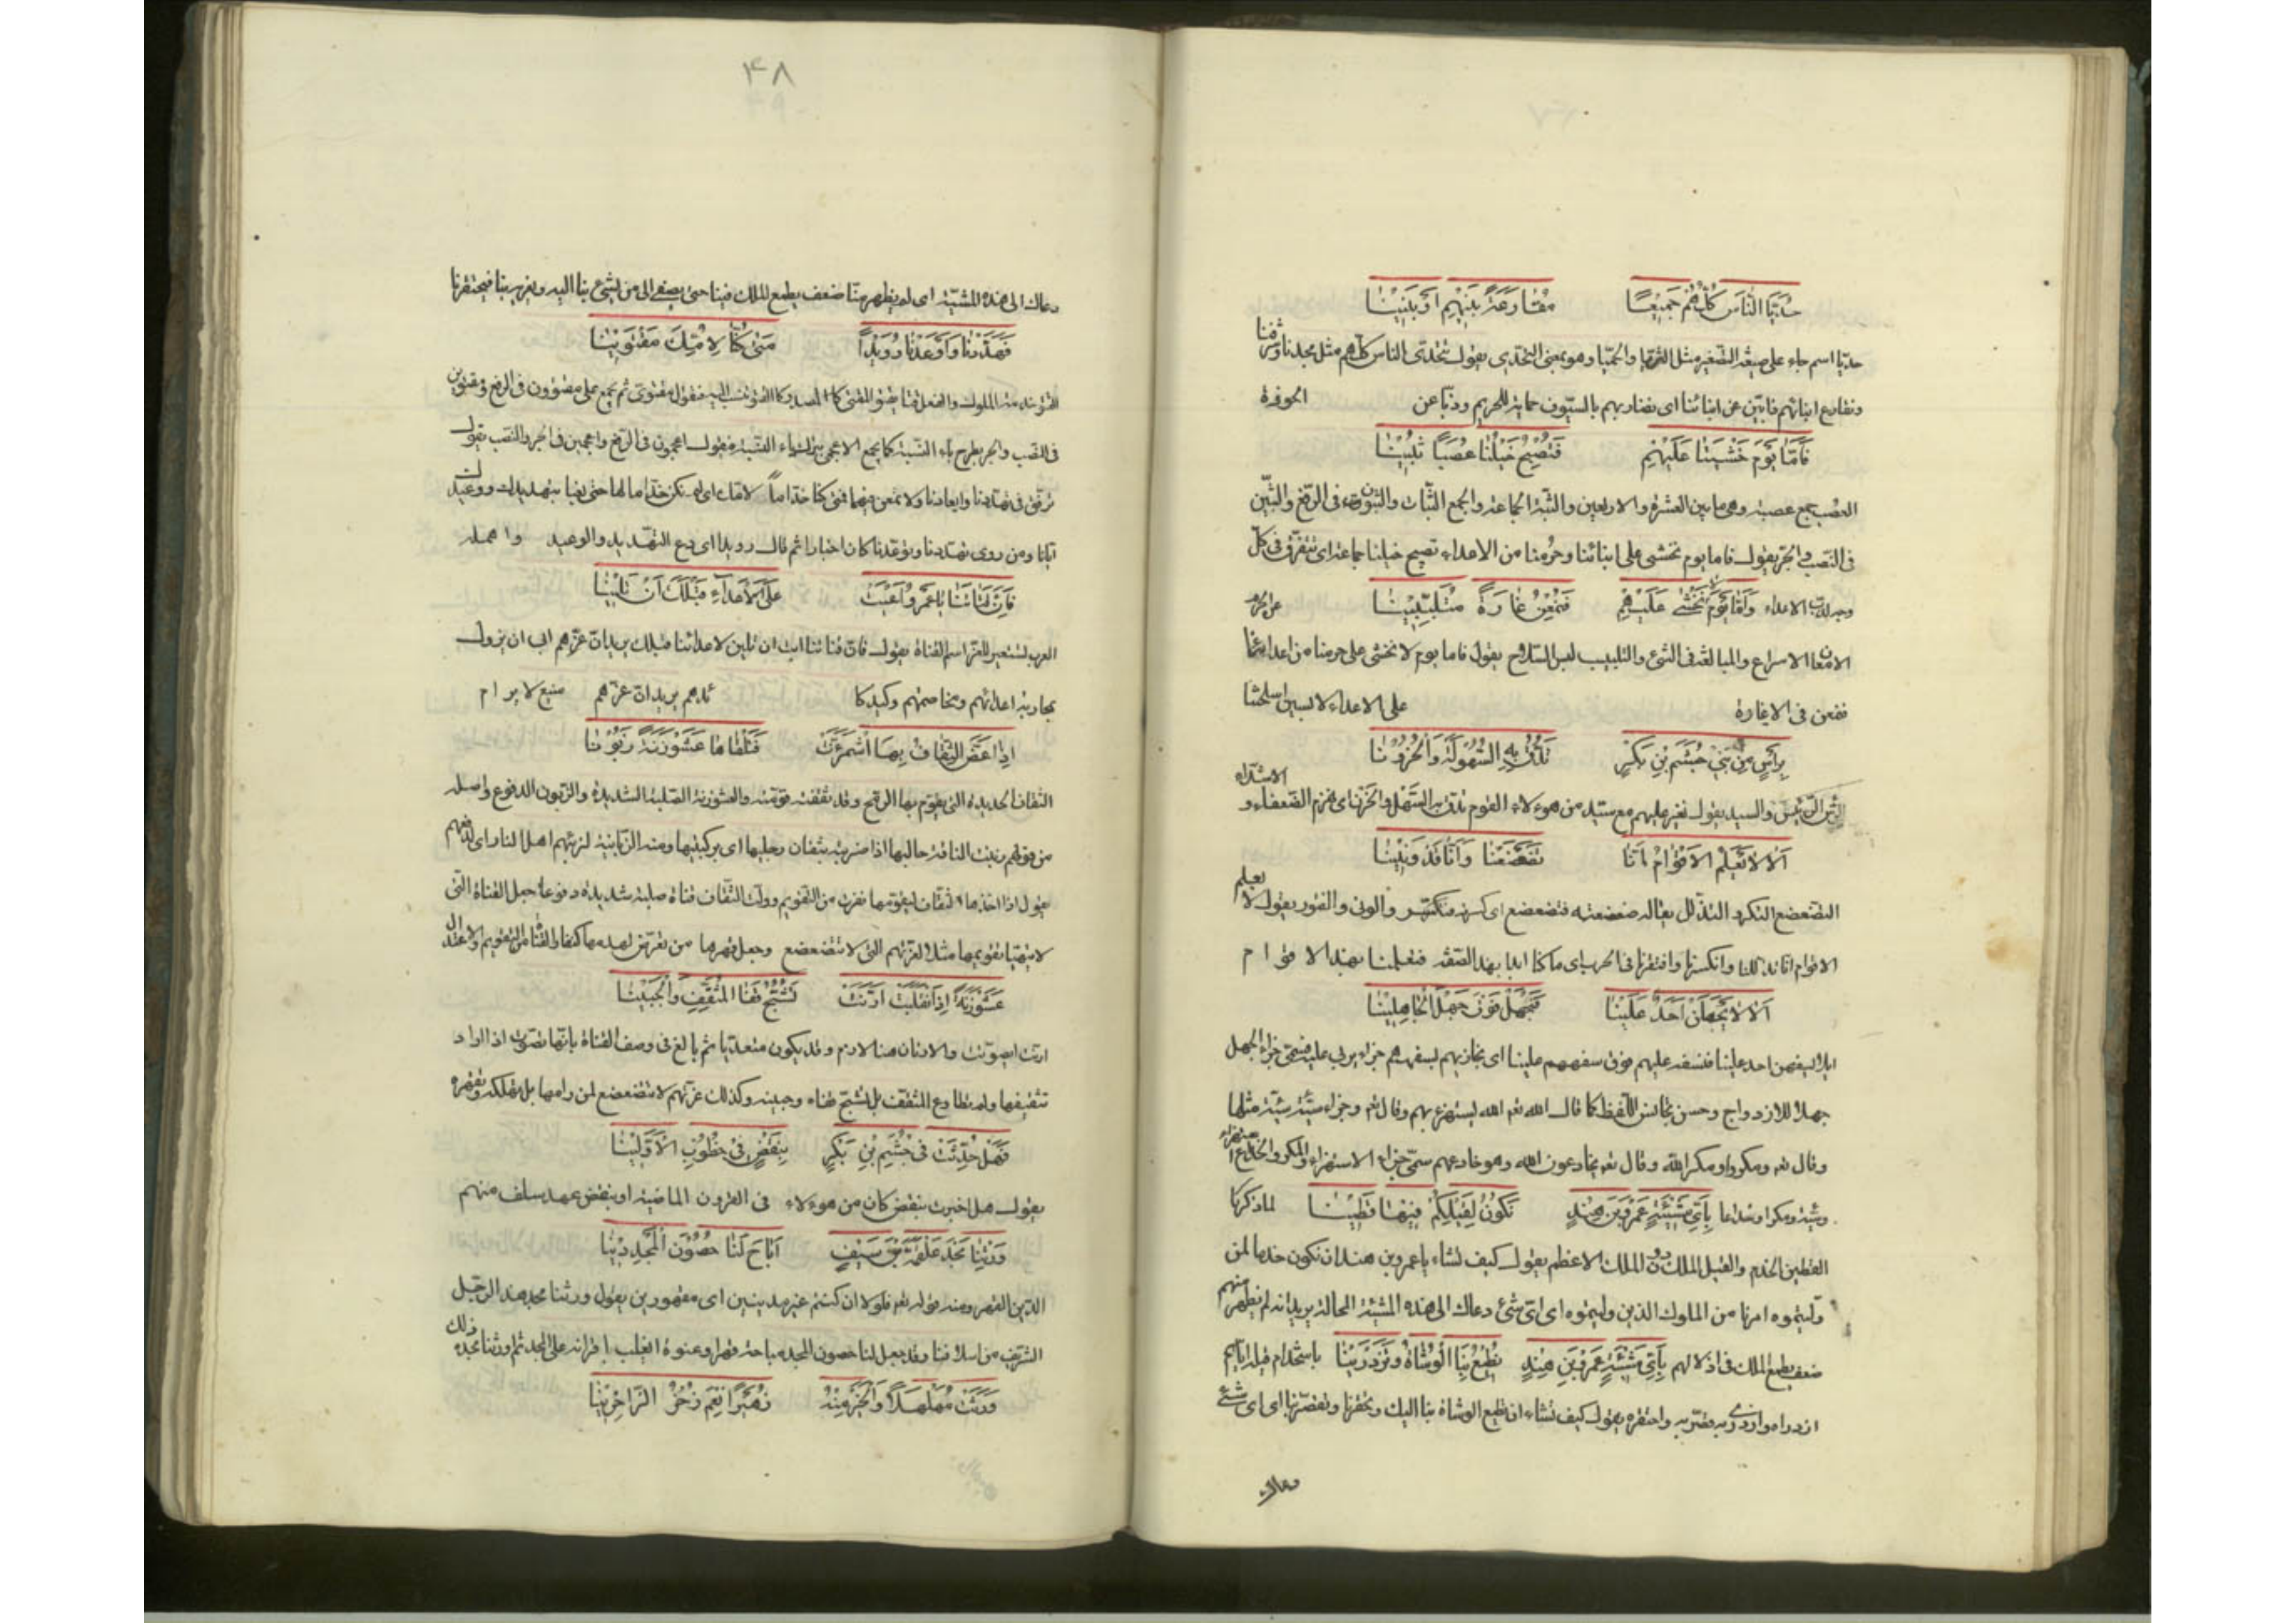 حُدَيَّا النَّاسِ كُلُّهُم جَمِيعًا مُقَارَعَةً بَنِيهِم أَوْ بَنِينَا
حديّا اسم جاء على صيغة التصغير مثل الثريا والحميّا وهو بمعنى التحدّى يقول نتحدّى الناس كلّهم مثل مجدنا وشرفنا
ونقارع ابنائهم ذابّين عن ابنائنا اى نضاربهم بالسيوف حماية للحريم وذبّا عن الحوزة
فَأَمَّا يَوْمَ خَشْيَتِنَا عَلَيْهِمْ فَتُصْبِحُ خَيْلُنَا عُصَبًا ثُبِينَا
العصب جمع عصبة وهى ما بين العشرة والاربعين والثبة الجماعة والجمع الثبات والثبون فى الرفع والثبين
فى النصب والجر يقول فاما يوم نخشى على ابنائنا وحرمنا من الاعداء تصبح خيلنا جماعة اى تتفرق فى كلّ
وجه لذبّ الاعداء وَأَمَّا يَوْمَ لَا نَخْشَى عَلَيْهِم فَنُمْعِنُ غَارَةً مُتَلَبِّبِينَا عن الحرم
الامعان الاسراع والمبالغة فى الشئ والتلبيب لبس السلاح يقول فاما يوم لا نخشى على حرمنا من اعدائنا
فنمعن فى الاغارة على الاعداء لابسين اسلحتنا
بِرَأْسٍ مِنْ بَنِي جُشَمِ بْنِ بَكْرٍ نَدُقُّ بِهِ السُّهُولَةَ وَالْحُزُونَا
الرأس الرئيس والسيد يقول نغير عليهم مع سيد من هؤلاء القوم ندق به السهل والحزن اى نهزم الضعفاء و الاشداء
أَلَا لَا يَعْلَمِ الْأَقْوَامُ أَنَّا تَضَعْضَعْنَا وَأَنَّا قَدْ وَنِينَا
التضعضع التكسر والتذلل يقال ضعضعته فتضعضع اى كسرته فتكسّر والونى والفتور يقول لا يعلم
الاقوام اننا تذللنا وانكسرنا وافترنا فى الحرب اى ما كنا ابدا بهذه الصفة فتعلمنا بهذا الاقوام
أَلَا لَا يَجْهَلَنْ أَحَدٌ عَلَيْنَا فَنَجْهَلَ فَوْقَ جَهْلِ الْجَاهِلِينَا
اى لا يسفهن احد علينا فنسفه عليهم فوق سفههم علينا اى نجازيهم لسفههم جزاء يربى عليه فسمّى جزاء الجهل
جهلا للازدواج وحسن تجانس اللفظ كما قال الله تعم الله يستهزء بهم وقال تعم وجزاء سيئة سيئة مثلها
وقال تعم ومكروا ومكر الله وقال تعم يخادعون الله وهو خادعهم سمّى جزاء الاستهزاء والمكر والخداع استهزاء
وسيئة ومكرا وخداعا بِأَيِّ مَشِيئَةٍ عَمْرَو بْنَ هِنْدٍ نَكُونُ لِقَيْلِكُمْ فِيهَا قَطِينَا لما ذكرنا
القطين الخدم والقيل الملك دون الملك الاعظم يقول كيف تشاء يا عمرو بن هند ان نكون خدما لمن
وليتموه امرنا من الملوك الذين وليتموه اى اىّ شئ دعاك الى هذه المشيئة المحالة يريد انه لم يظهر منهم
ضعف يطمع الملك فى اذلالهم بِأَيِّ مَشِيئَةٍ عَمْرَو بْنَ هِنْدٍ تُطِيعُ بِنَا الْوُشَاةَ وَتَزْدَرِينَا باستخدام قيله اياهم
ازدراه وازدرى به قصّر به واحتقره يقول كيف تشاء ان تطيع الوشاة بنا اليك وتحقرنا وتقصّر بنا اى اى شئ
دعاك
٤٨
دعاك الى هذه المشيّة اى لم يظهر منّا ضعف يطمع الملك فينا حتى يصغى الى من يشى بنا اليه ويغريه بنا فيحتقرنا
فَهَدِّدْنَا وَأَوْعِدْنَا رُوَيْدًا مَتَى كُنَّا لِأُمِّكَ مُقْتَوِينَا
القتو خدمة الملوك والفعل قتا يقتو المقتى كالمصدر كالقتو ينسب اليه فتقول مقتوى ثم يجمع على مقتوون فى الرفع ومقتوين
فى النصب والجر بطرح ياء النسبة كما يجمع الاعجمى بترك ياء النسبة فيقول اعجمون فى الرفع واعجمين فى الجر والنصب يقول
ترفّق فى تهددنا وايعادنا ولا تمعن فيهما فمتى كنا خدّاماً لامك اى لم نكن خدّاما لها حتى نعبا بتهديدك ووعيدك
ايّانا ومن روى تهددنا وتوعدنا كان اخبارا ثم قال رويدا اى دع التهديد والوعيد وامهله
فَإِنَّ قَنَاتَنَا يَا عَمْرُو أَعْيَتْ عَلَى الْأَعْدَاءِ قَبْلَكَ أَنْ تَلِينَا
العرب تستعير للعز اسم القناة يقول فان قناتنا ابت ان تلين لاعدائنا قبلك يريد ان عزّهم ابى ان يزول
بمحاربة اعدائهم ومخاصمتهم وكيدكا ئدهم يريد ان عزّهم منيع لا يرام
إِذَا عَضَّ الثِّقَافُ بِهَا اشْمَأَزَّتْ فَتَلْقَاهَا عَشَوْزَنَةً زَبُونَا
الثقاف الحديدة التى يقوم بها الرمح وقد ثقفته قومته والعشوزنة الصلبة الشديدة والزبون الدفوع واصله
من قولهم زبنت الناقة حالبها اذا ضربته بثفنات رجليها اى بركبتيها ومنه الزبانية لزبنهم اهل النار اى لدفعهم
يقول اذا اخذها الثقاف ليقومها نفرت من التقويم وولت الثقاف قناة صلبة شديدة دفوعا جعل القناة التى
لا يتهيّا تقويمها مثلا لعزّتهم التى لا تتضعضع وجعل قهرها من تعرّض لهدمها كنفار القناة من التقويم والاعتدال
عَشَوْزَنَةً إِذَا انْقَلَبَتْ أَرَنَّتْ تَشُجُّ قَفَا الْمُثَقِّفِ وَالْجَبِينَا
ارنت اى صوتت والارنان هنا لازم وقد يكون متعديا ثم بالغ فى وصف القناة بانها تصوّت اذا اراد
تثقيفها ولم تطاوع المثقف بل تشج قفاه وجبينه وكذلك عزتهم لا تتضعضع لمن رامها بل تهلكه وتقهره
فَهَلْ حُدِّثْتَ فِي جُشَمِ بْنِ بَكْرٍ بِنَقْضٍ فِي خُطُوبِ الْأَوَّلِينَا
يقول هل اخبرت بنقض كان من هؤلاء فى القرون الماضية او بنقض عهد سلف منهم
وَرِثْنَا مَجْدَ عَلْقَمَةَ بْنِ سَيْفٍ أَبَاحَ لَنَا حُصُونَ الْمَجْدِ دِينَا
الدين القهر ومنه قوله تعم فلولا ان كنتم غير مدينين اى مقهورين يقول ورثنا مجد هذا الرجل
الشريف من اسلافنا وقد جعل لنا حصون المجد مباحة قهرا وعنوة اى غلب اقرانه على المجد ثم اورثنا مجده ذلك
وَرِثْتُ مُهَلْهِلًا وَالْخَيْرَ مِنْهُ زُهَيْرًا نِعْمَ ذُخْرُ الذَّاخِرِينَا